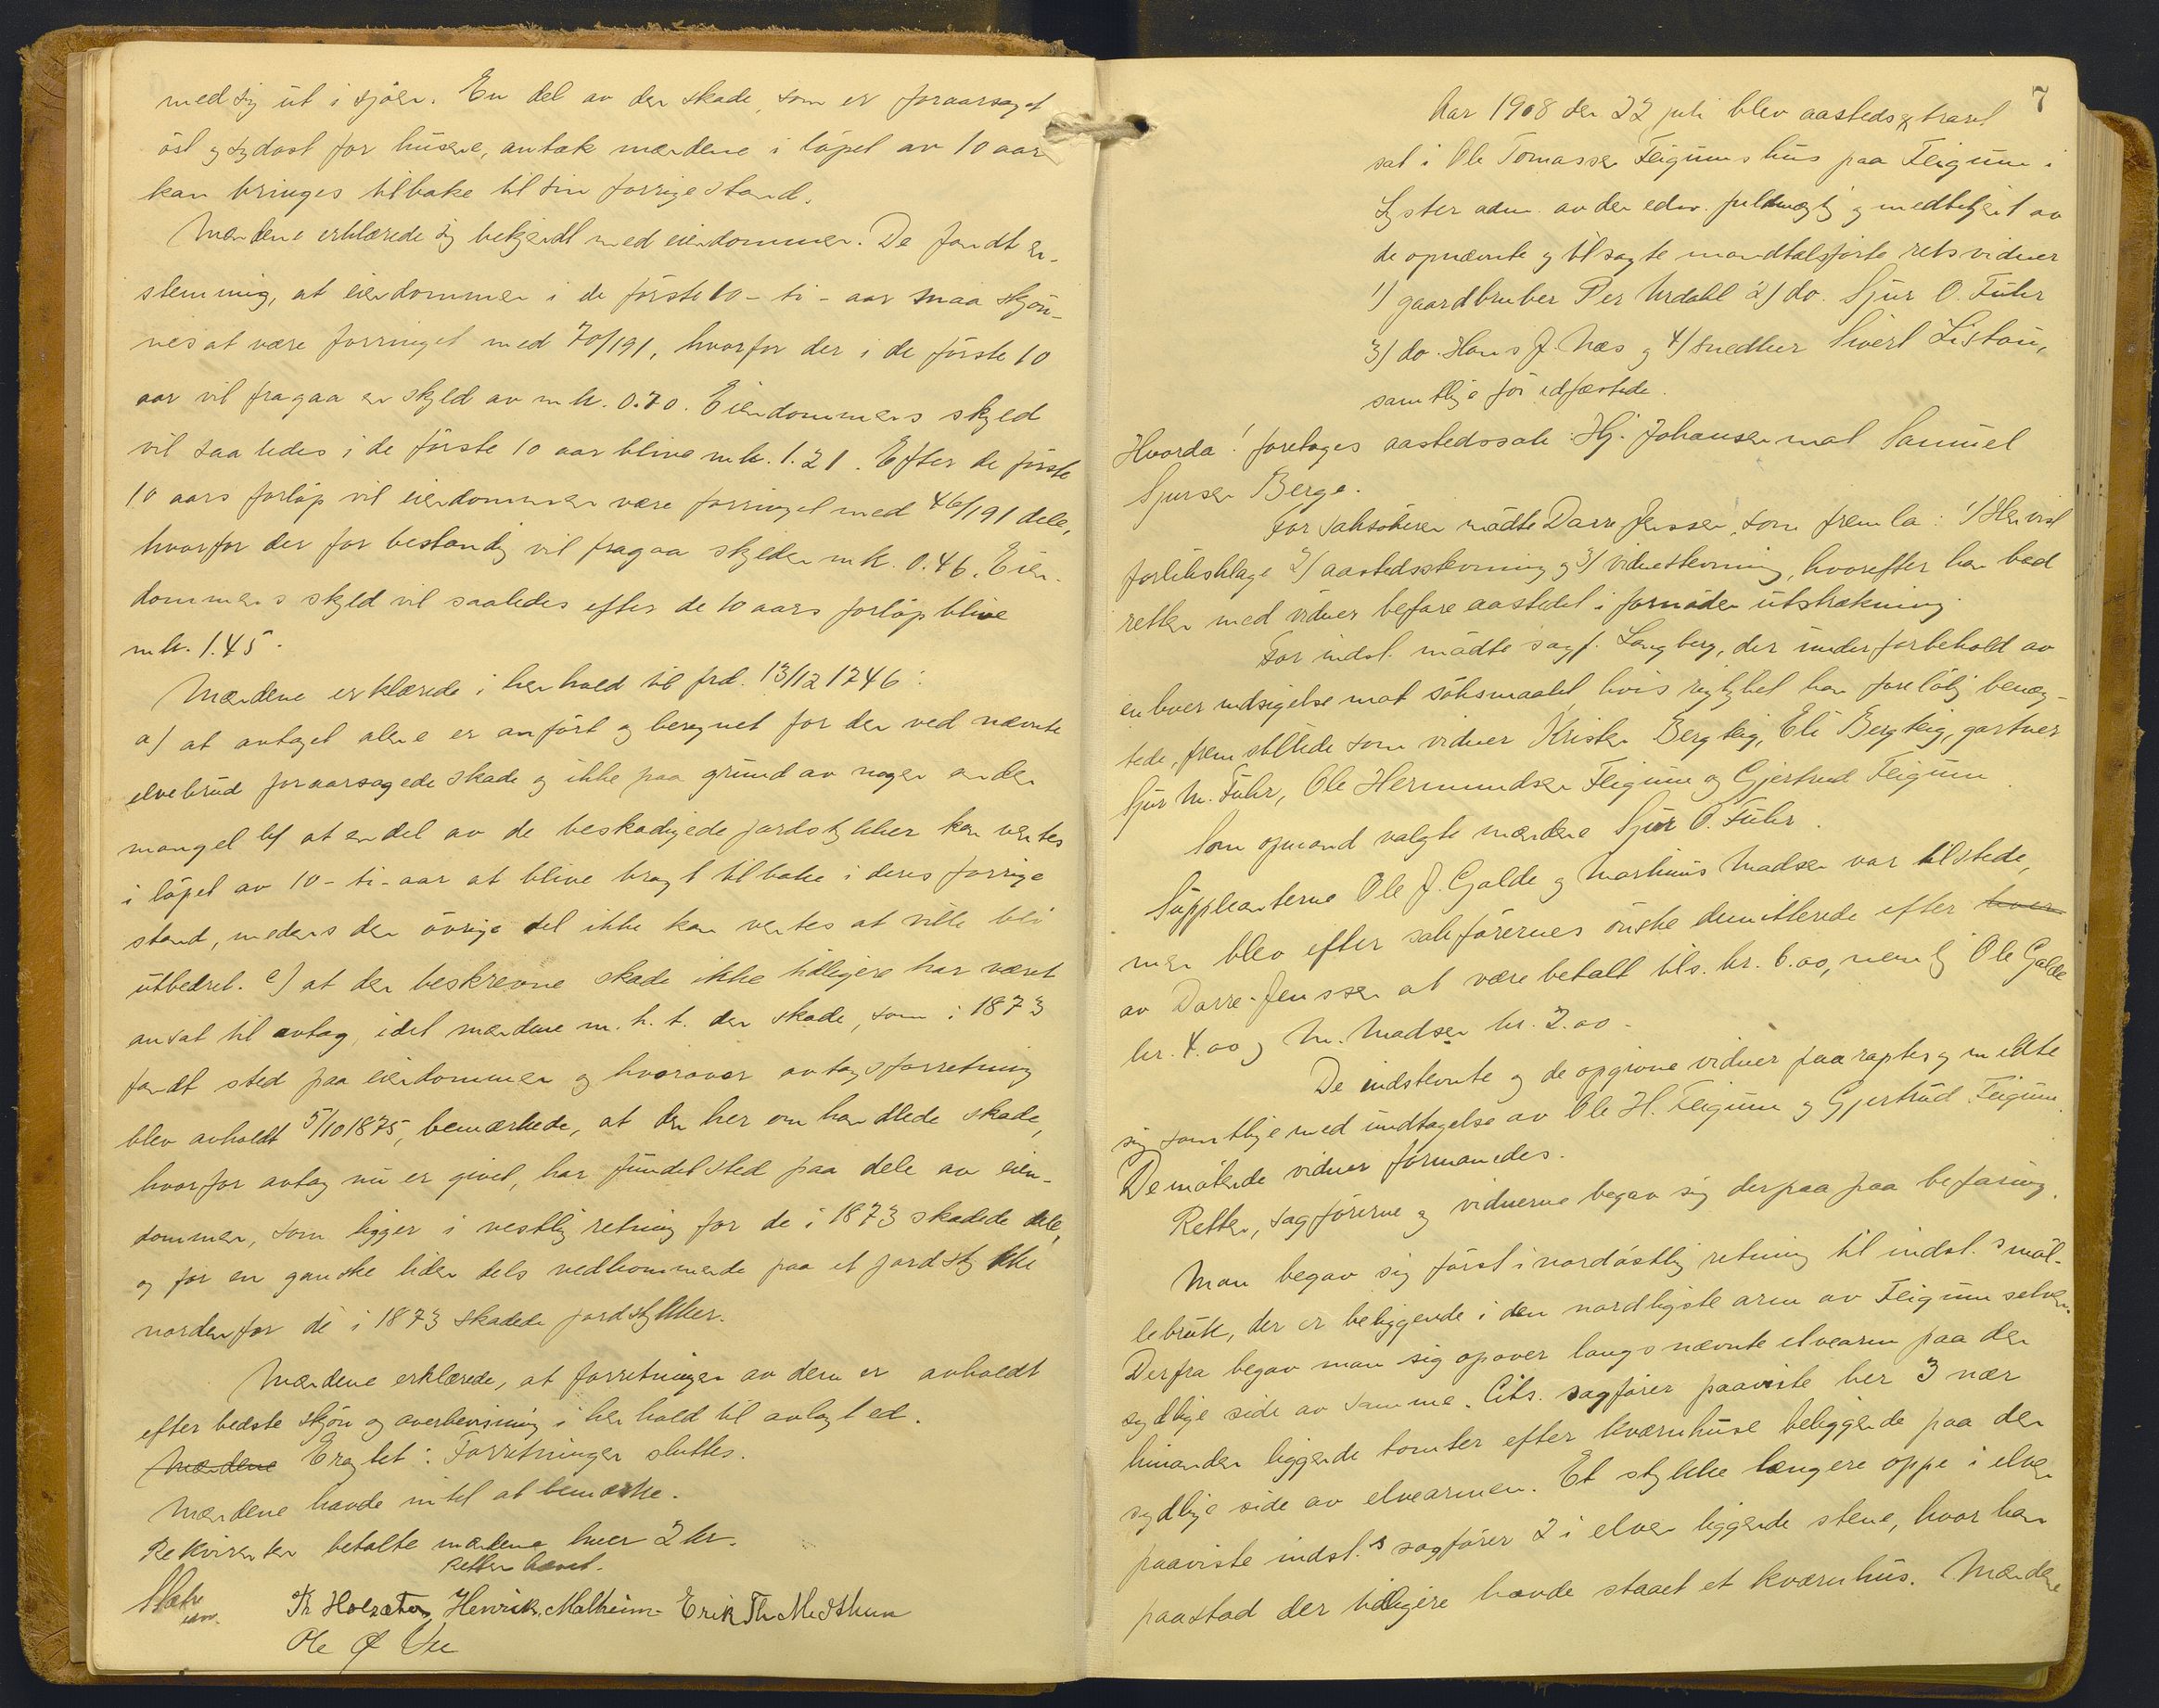 med sig ut i sjöen. En del av den skade, som er foraarsaget
öst og sydöst for husene, antok mændene i löpet av 10 aar
kan bringes tilbake til sin forrige stand.
Mændene erklærede sig bekjendt med eiendommen. De fandt en-
stemmig, at eiendommen i de förste 10 - ti - aar maa skjön-
nes at være forringet med 70/191, hvorfor der i de förste 10
aar vil fragaa en skyld av mk. 0.70. Eiendommens skyld
vil saaledes i de förste 10 aar blive mk. 1.21. Efter de förste
10 aars forlöp vil eiendommen være forringet med 46/191 dele,
hvorfor der for bestandig vil fragaa skylden mk. 0.46. Eien-
dommens skyld vil saaledes efter de 10 aars forlöp blive
mk. 1.45.
Mændene erklærede i henhold til frd. 13/12 1746:
a) at avtaget alene er anfört og beregnet for den ved nævnte
elvebrud foraarsagede skade og ikke paa grund av nogen anden
mangel b) at en del av de beskadigede jordstykker kan ventes
i löpet av 10 - ti - aar at blive bragt tilbake i deres forrige
stand, medens den övrige del ikke kan ventes at ville bli
utbedret. c) at den beskrevne skade ikke tidligere har været
ansat til avtag, idet mændene m. h. t. den skade, som i 1873
fandt sted paa eiendommen og hvorover avtagsforretning
blev avholdt 5/10 1875, bemærkede, at den her omhandlede skade,
hvorfor avtag nu er givet, har fundet sted paa dele av eien-
dommen, som ligger i vestlig retning for de i 1873 skadede dele,
og for en ganske liden dels vedkommende paa et jordstykke
nordenfor de i 1873 skadede jordstykker.
Mændene erklærede, at forretningen av dem er avholdt
efter bedste skjön og overbevisning i henhold til avlagt ed.
Mændene Eragtet: Forretningen sluttes.
Mændene havde intet at bemærke.
Rekvirenten betalte mændene hver 2 kr.
Retten hævet.
Henrik Malheim Erik Th Melthun
Ole Ø
7
Aar 1908 den 22 juli blev aastedsextraret
sat i Ole Tomassen Feigums hus paa Feigum i
Lyster adm. av den edsv. fuldmægtig og medbetjent av
de opnævnte og tilsagte mandtalsförte retsvidner
1) gaardbruker Per Urdahl 2) do. Sjur O. Fuhr
3) do. Hans J. Næs og 4) snedker Sivert Listou,
samtlige för edfæstede.
Hvorda! foretoges aastedssak: Hj. Johansen mot Samuel
Sjursen Berge.
For saksökeren mödte Darre Jenssen, som fremla: 1) Henvist
forliksklage 2) aastedsstevning og 3) vidnestevning, hvorefter han bad
retten med vidner befare aastedet i fornöden utstrækning.
For indst. mödte sagf. Langberg, der under forbehold av
enhver indsigelse mot söksmaalet, hvis rigtighet han forelöbig benæg-
tede, fremstillede som vidner Kristen Bergteig, Eli Bergteig, gartner
Sjur M. Fuhr, Ole Hermundsen Feigum og Gjertrud Feigum
Som opmand valgte mændene Sjur O. Fuhr.
Suppleanterne Ole J. Galde og Martinus Madsen var tilstede,
men blev efter sakförernes önske demitterede efter hver
av Darre-Jenssen at være betalt tils. kr. 6.00, nemlig Ole Galde
kr. 4.00 og M. Madsen kr. 2.00.
De indstevnte og de opgivne vidner paaraptes og meldte
sig samtlige med undtagelse av Ole H. Feigum og Gjertrud Feigum.
De mötende vidner formanedes.
Retten, sagförerne og vidnerne begav sig derpaa paa befaring.
Man begav sig först i nordöstlig retning til indst.s möl-
lebruk, der er beliggende i den nordligste arm av Feigumselven.
Derfra begav man sig opover langs nævnte elvearm paa den
sydlige side av samme. Cits. sagförer paaviste her 3 nær
hinanden liggende tomter efter kværnhuse beliggende paa den
sydlige side av elvearmen. Et stykke længere oppe i elven
paaviste indst.s sagförer 2 i elven liggende stene, hvor han
paastod der tidligere havde staaet et kværnhus. Mændene